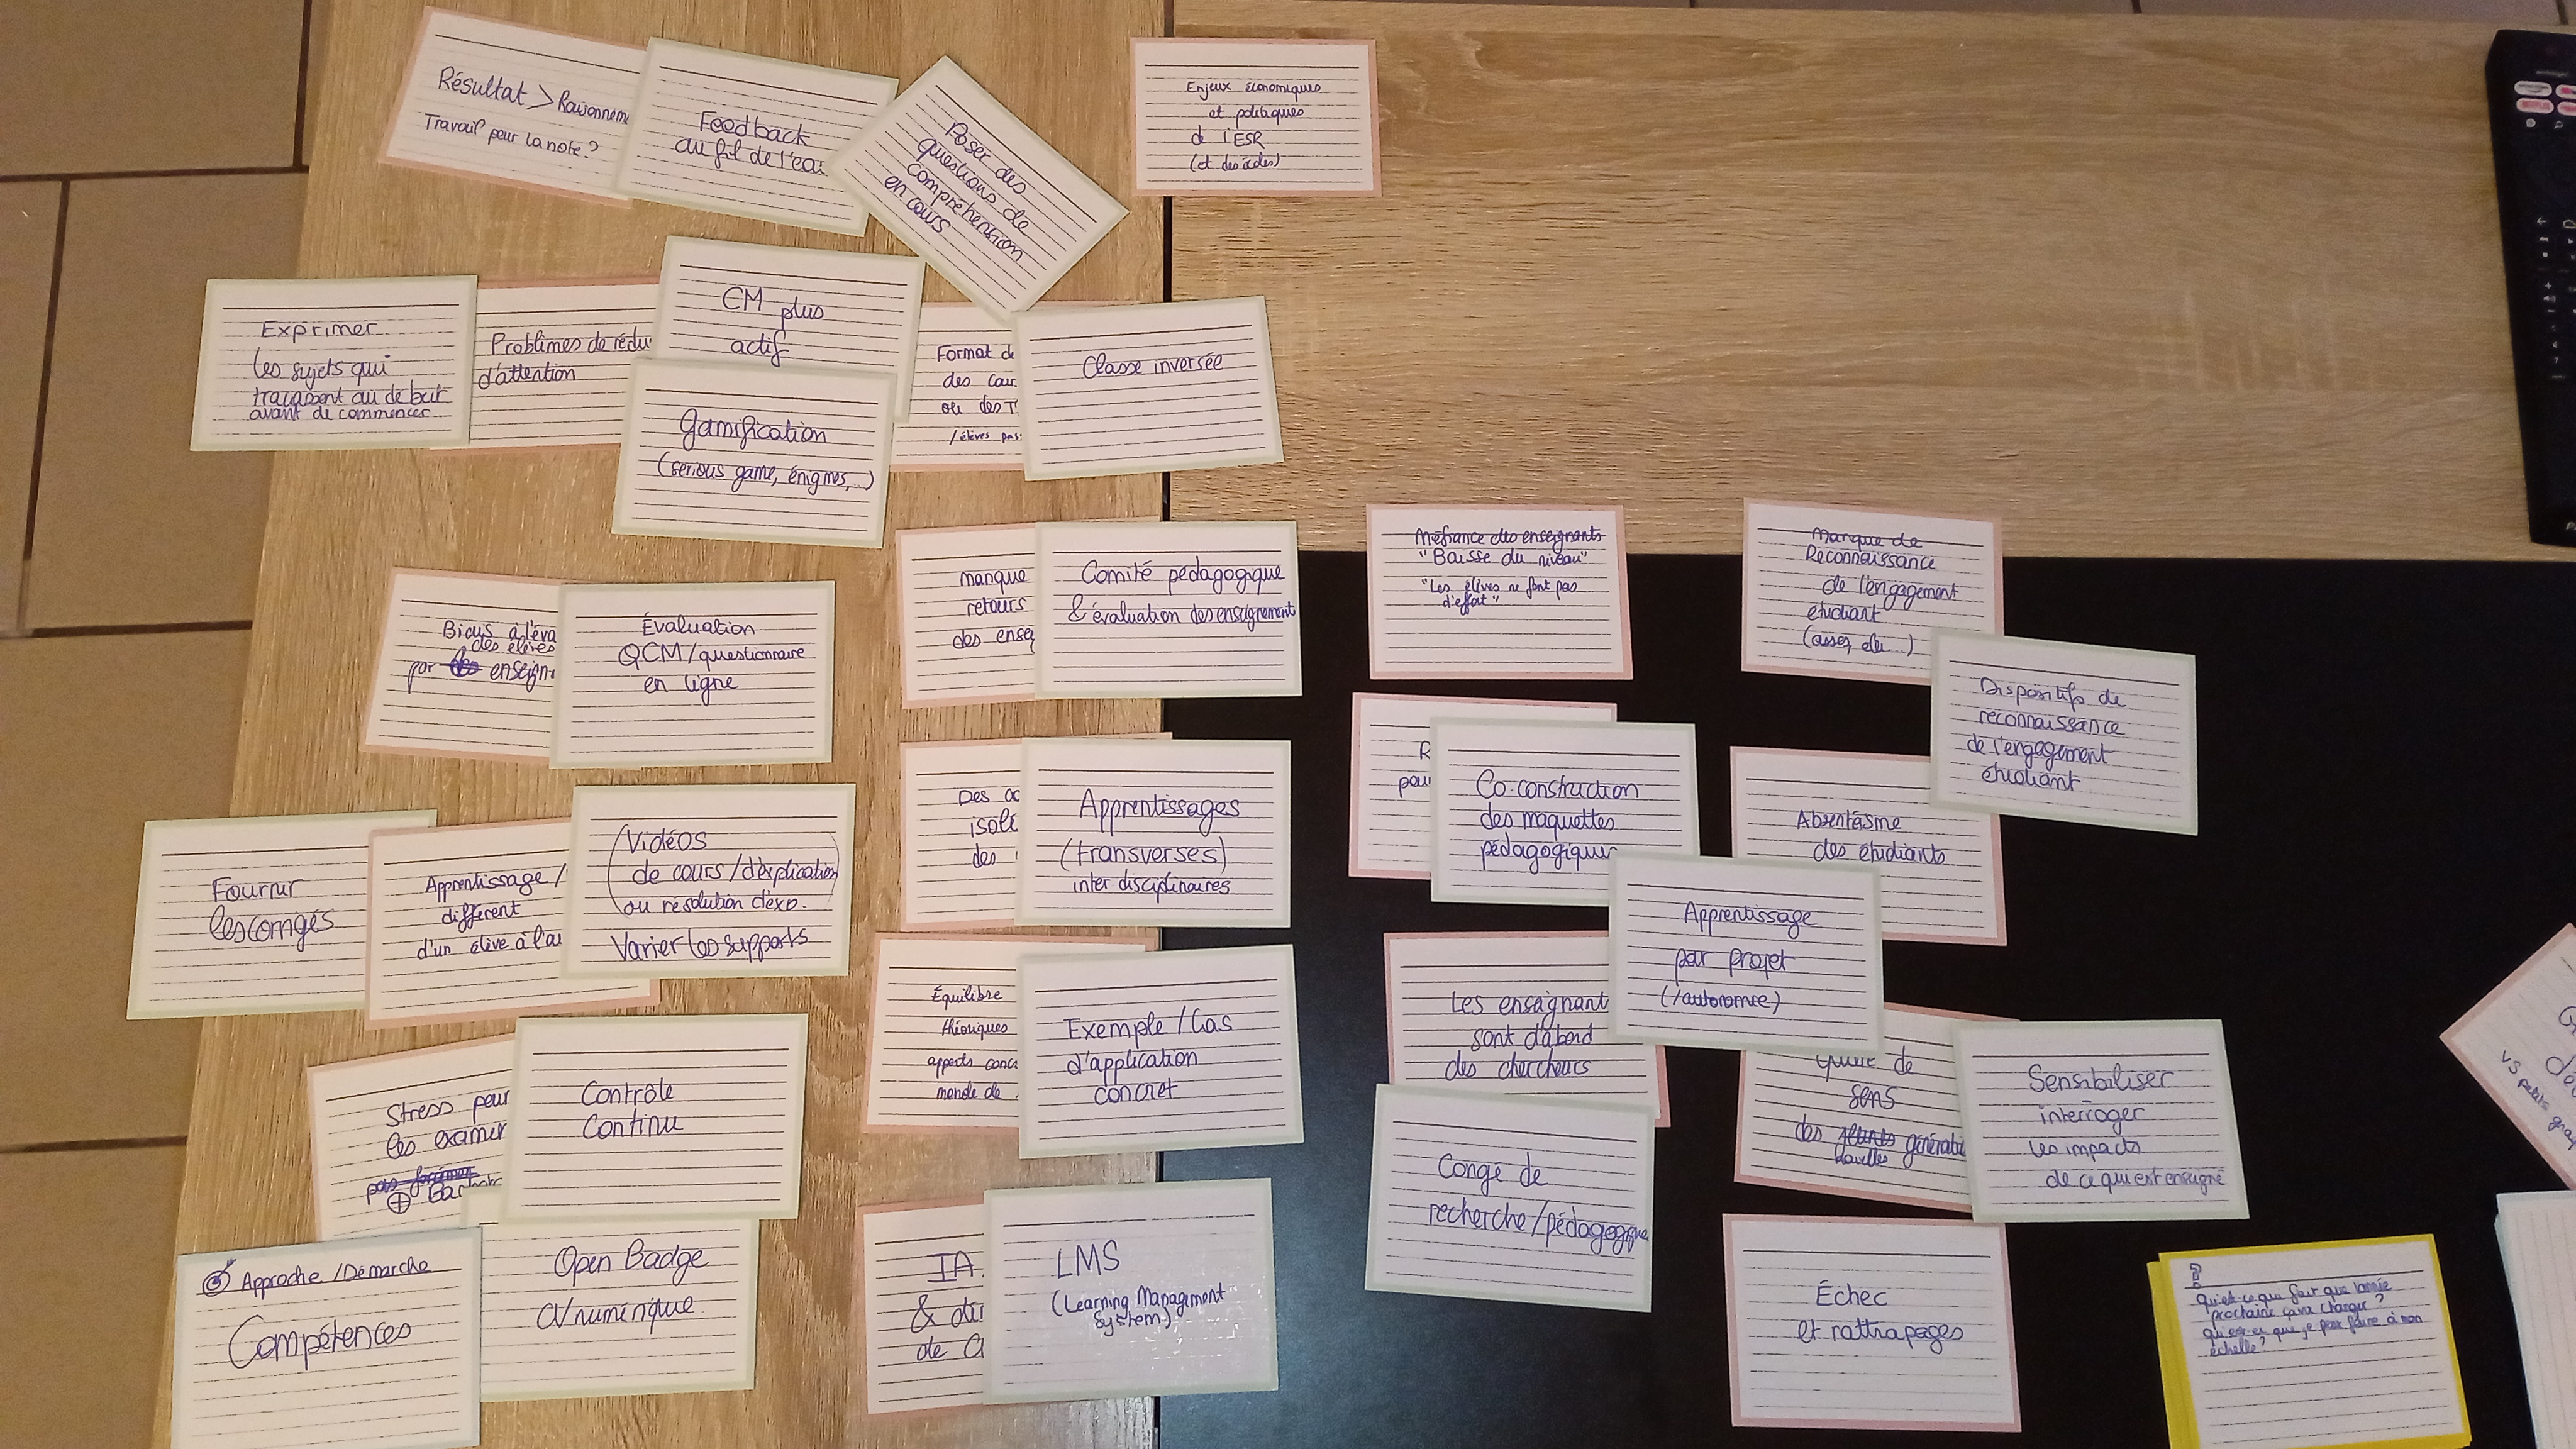 Résultat > Raisonnem
Travail pour la note?
Feedback
au fil de l'eau
Poser des
questions de
compréhension
en cours
Enjeux économiques
et politiques
de l'ESR
(et des écoles)
Exprimer
les sujets qui
tracassent au début
avant de commencer
Problèmes de rédu
d'attention
CM plus
actif
Gamification
(serious game, énigmes,...)
Format de
des cour
ou des T
/élèves pas
Classe inversée
Biais à l'éva
des élèves
par enseign
Évaluation
QCM/questionnaire
en ligne
manque
retours
des ensei
Comité pédagogique
& évaluation des enseignement
Méfiance des enseignants
"Baisse du niveau"
"Les élèves ne font pas
d'effort"
Manque de
Reconnaissance
de l'engagement
étudiant
(asso, élu...)
Dispositifs de
reconnaissance
de l'engagement
étudiant
Fournir
les corrigés
Apprentissage /
différent
d'un élève à l'au
(Vidéos
de cours/d'explication
ou résolution d'exo.)
Varier les supports
Des ac
isolé
des
Apprentissages
(transverses)
inter disciplinaires
R
pour
Co-construction
des maquettes
pédagogiques
Absentéisme
des étudiants
Apprentissage
par projet
(/autonomie)
Équilibre
théoriques
apports conc
monde de
Exemple/Cas
d'application
concret
Les enseignant
sont d'abord
des chercheurs
Congé de
recherche/pédagogique
Quête de
sens
des jeunes générati
nouvelles
Sensibiliser
interroger
les impacts
de ce qui est enseigné
Stress pour
les examen
pas forcémen
Contrôle
Continu
Approche /Démarche
Compétences
Open Badge
CV numérique
IA
& di
de
LMS
(Learning Management
System)
Échec
et rattrapages
?
Qu'est-ce qui fait que l'année
prochaine ça va changer?
qu'est-ce que je peux faire à mon
échelle?
vs petits